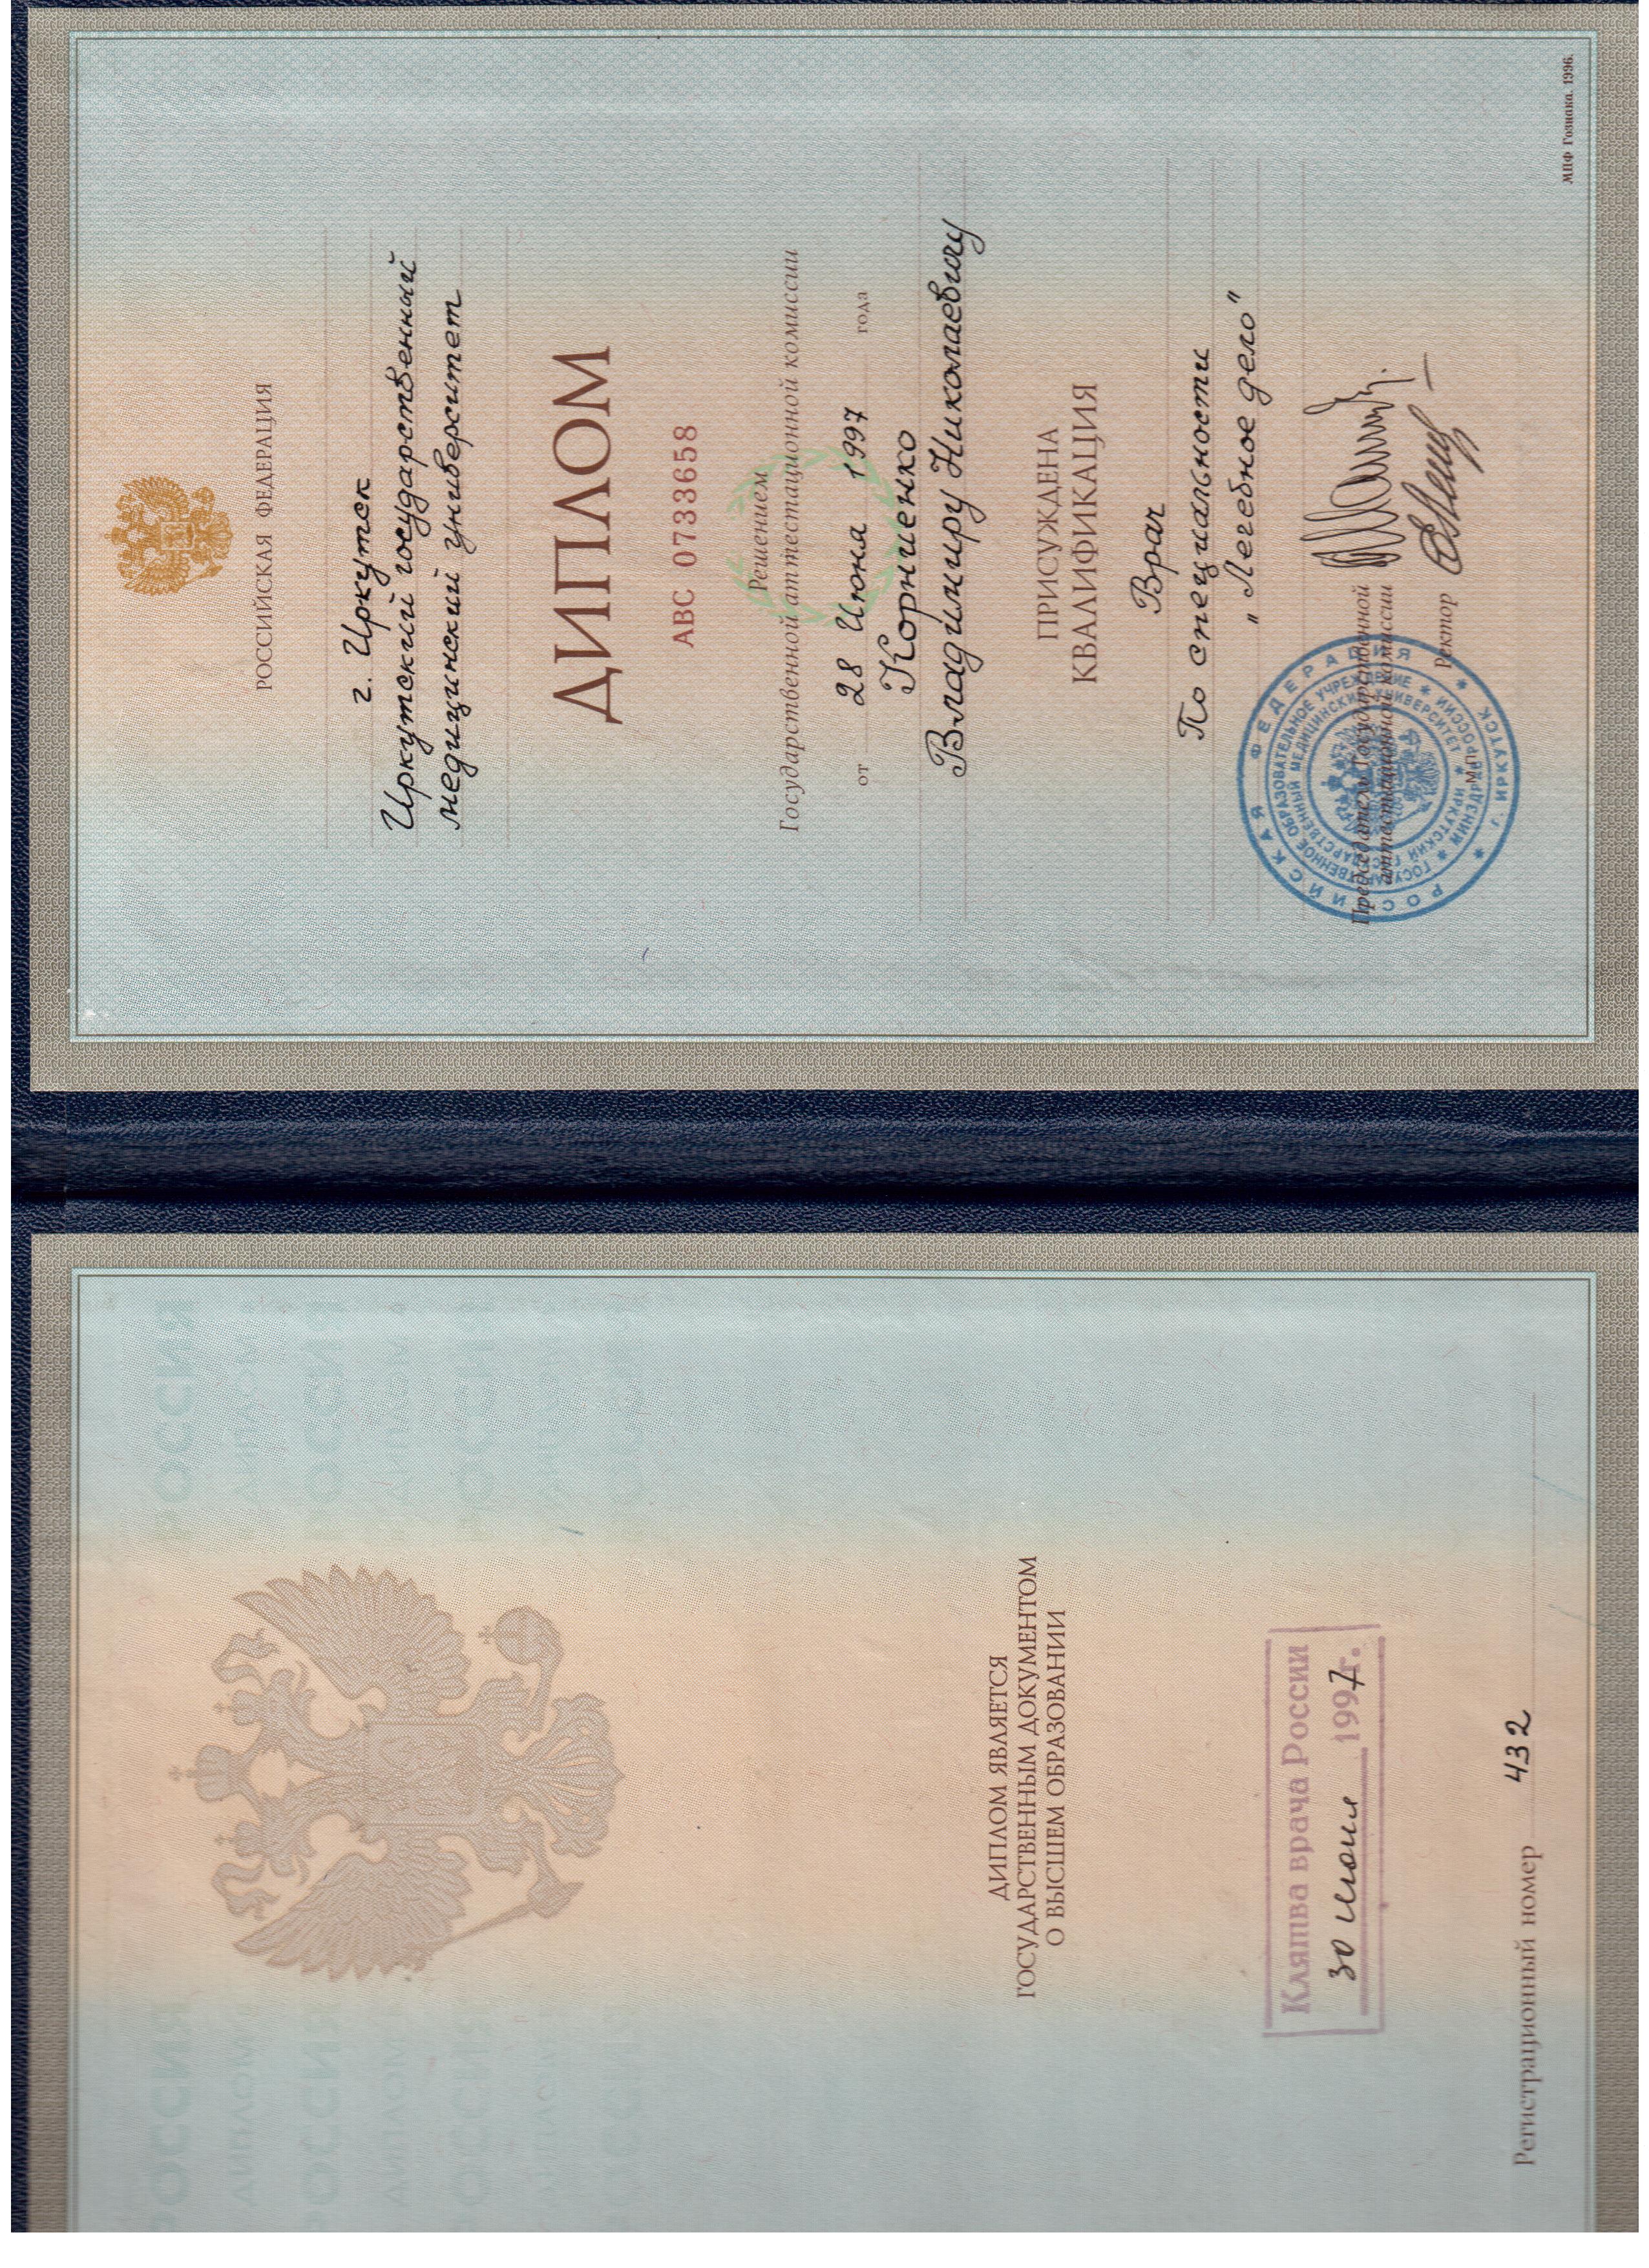 РОССИЯ РОССИЯ
ДИПЛОМ ДИПЛОМ
РОССИЯ РОССИЯ
ДИПЛОМ ДИПЛОМ
РОССИЯ РОССИЯ
ДИПЛОМ ДИПЛОМ
РОССИЯ РОССИЯ
ДИПЛОМ ЯВЛЯЕТСЯ
ГОСУДАРСТВЕННЫМ ДОКУМЕНТОМ
О ВЫСШЕМ ОБРАЗОВАНИИ
Клятва врача России
30 июня 1997г.
Регистрационный номер 432
РОССИЙСКАЯ ФЕДЕРАЦИЯ
г. Иркутск
Иркутский государственный
медицинский университет
ДИПЛОМ
АВС 0733658
Решением
Государственной аттестационной комиссии
от 28 Июня 1997 года
Корниенко
Владимиру Николаевичу
ПРИСУЖДЕНА
КВАЛИФИКАЦИЯ
Врач
По специальности
„Лечебное дело"
Председатель Государственной
аттестационной комиссии
Ректор
М.П.
РОССИЙСКАЯ ФЕДЕРАЦИЯ * г. ИРКУТСК *
ГОСУДАРСТВЕННОЕ ОБРАЗОВАТЕЛЬНОЕ УЧРЕЖДЕНИЕ * МИНЗДРАВ РОССИИ *
ИРКУТСКИЙ ГОСУДАРСТВЕННЫЙ МЕДИЦИНСКИЙ УНИВЕРСИТЕТ *
МПФ Гознака. 1996.